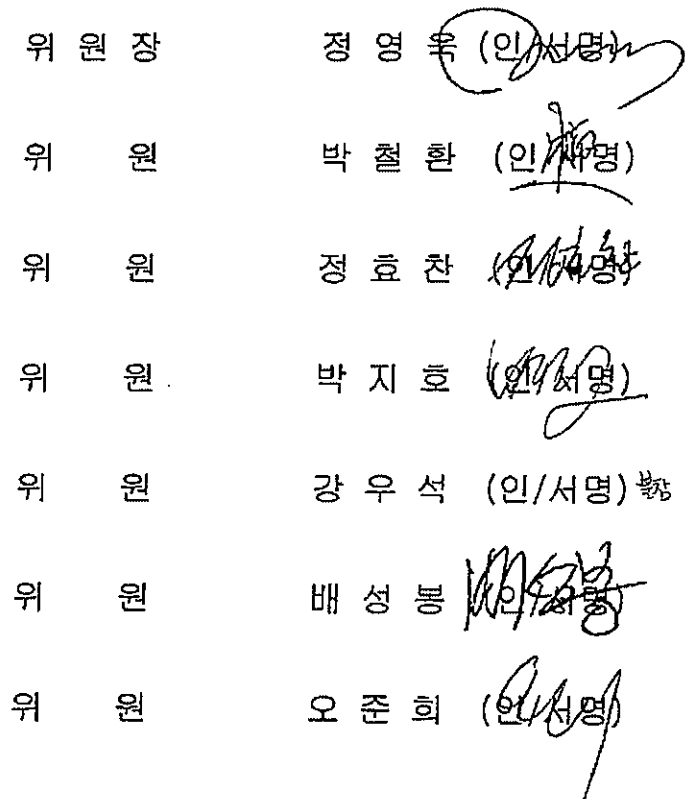 위 원 장 정 영 욱 (인/서명)
위 원 박 철 환 (인/서명)
위 원 정 효 찬 (인/서명)
위 원 박 지 호 (인/서명)
위 원 강 우 석 (인/서명) 불참
위 원 배 성 봉 (인/서명)
위 원 오 준 희 (인/서명)